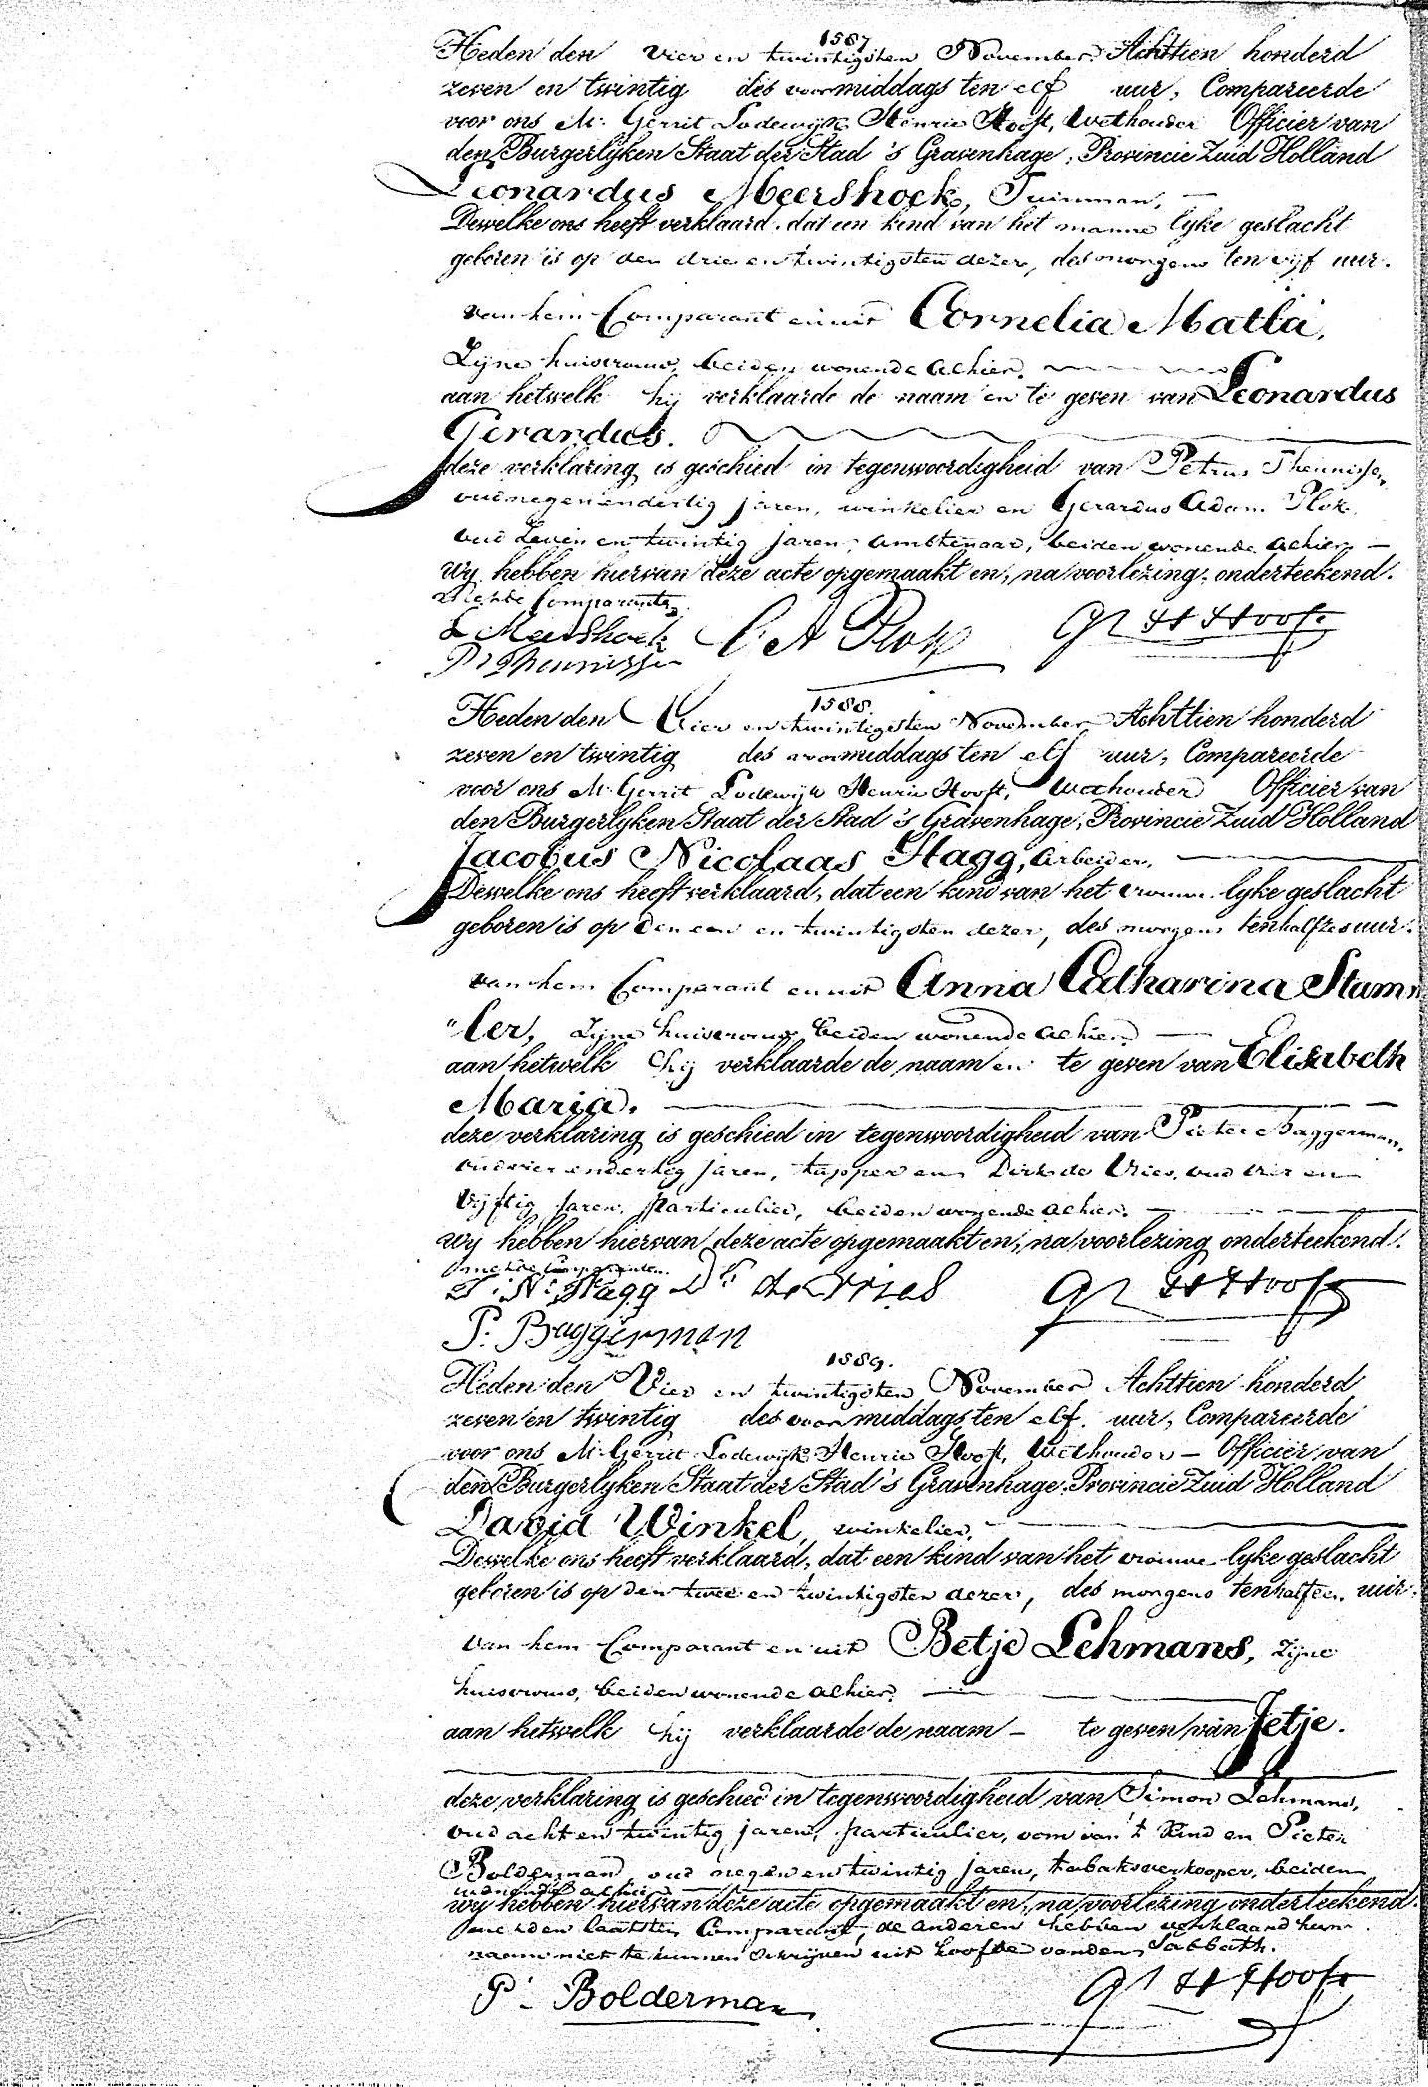 1587
Heden den Vier en twintigsten November Achttien honderd
zeven en twintig des voormiddags ten elf uur, Compareerde
voor ons Mr. Gerrit Lodewijk Henric Hooft, Wethouder Officier van
den Burgerlyken Staat der Stad 's Gravenhage, Provincie Zuid Holland
Leonardus Meershoek, Tuinman,
Dewelke ons heeft verklaard, dat een kind van het manne lyke geslacht
geboren is op den drie en twintigsten dezer, des morgens ten vyf uur.
van hem Comparant en uit Cornelia Matla,
Zyne huisvrouw, beiden wonende alhier.
aan hetwelk hy verklaarde de naam en te geven van Leonardus
Gerardus.
deze verklaring is geschied in tegenwoordigheid van Petrus Theunissen,
oud negen en dertig jaren, winkelier en Gerardus Adam Plok
oud Zeven en twintig jaren, ambtenaar, beiden wonende alhier
wy hebben hiervan deze acte opgemaakt en, na voorlezing, onderteekend.
met de Comparanten
L Meershoek G A Plok GL H Hooft
P Theunissen
1588.
Heden den Vier en twintigsten November Achttien honderd
zeven en twintig des voormiddags ten elf uur, Compareerde
voor ons Mr. Gerrit Lodewijk Henric Hooft, Wethouder Officier van
den Burgerlyken Staat der Stad 's Gravenhage, Provincie Zuid Holland
Jacobus Nicolaas Hagg, Arbeider,
Dewelke ons heeft verklaard, dat een kind van het vrouwe lyke geslacht
geboren is op den een en twintigsten dezer, des morgens ten half zes uur.
van hem Comparant en uit Anna Catharina Stumm
"ler, Zyne huisvrouw beiden wonende alhier
aan hetwelk hy verklaarde de naam en te geven van Elisabeth
Maria.
deze verklaring is geschied in tegenwoordigheid van Pieter Baggerman,
oud vier en dertig jaren, tapper en Dirk de Vries, oud vier en
vyftig jaren, particulier, beiden wonende alhier.
wy hebben hiervan deze acte opgemaakt en, na voorlezing onderteekend.
met de Comparanten.
J: N: Hagg Dk de Vries GL H Hooft
P. Baggerman
1589.
Heden den Vier en twintigsten November Achttien honderd
zeven en twintig des voormiddags ten elf uur, Compareerde
voor ons Mr. Gerrit Lodewijk Henric Hooft, Wethouder Officier van
den Burgerlyken Staat der Stad 's Gravenhage, Provincie Zuid Holland
David Winkel, winkelier,
Dewelke ons heeft verklaard, dat een kind van het vrouwe lyke geslacht
geboren is op den twee en twintigsten dezer, des morgens ten half een uur.
van hem Comparant en uit Betje Lehmans, zyne
huisvrouw, beiden wonende alhier.
aan hetwelk hy verklaarde de naam te geven van Jetje.
deze verklaring is geschied in tegenwoordigheid van Simon Lehmans,
oud acht en twintig jaren, particulier, oom van 't Kind en Pieter
Bolderman oud negen en twintig jaren, tabaksverkooper, beiden
wonende alhier
wy hebben hiervan deze acte opgemaakt en, na voorlezing onderteekend.
met den laatsten Comparant, de anderen hebben verklaard hun
naam niet te kunnen schrijven uit hoofde van den Sabbath.
P. Bolderman GL H Hooft